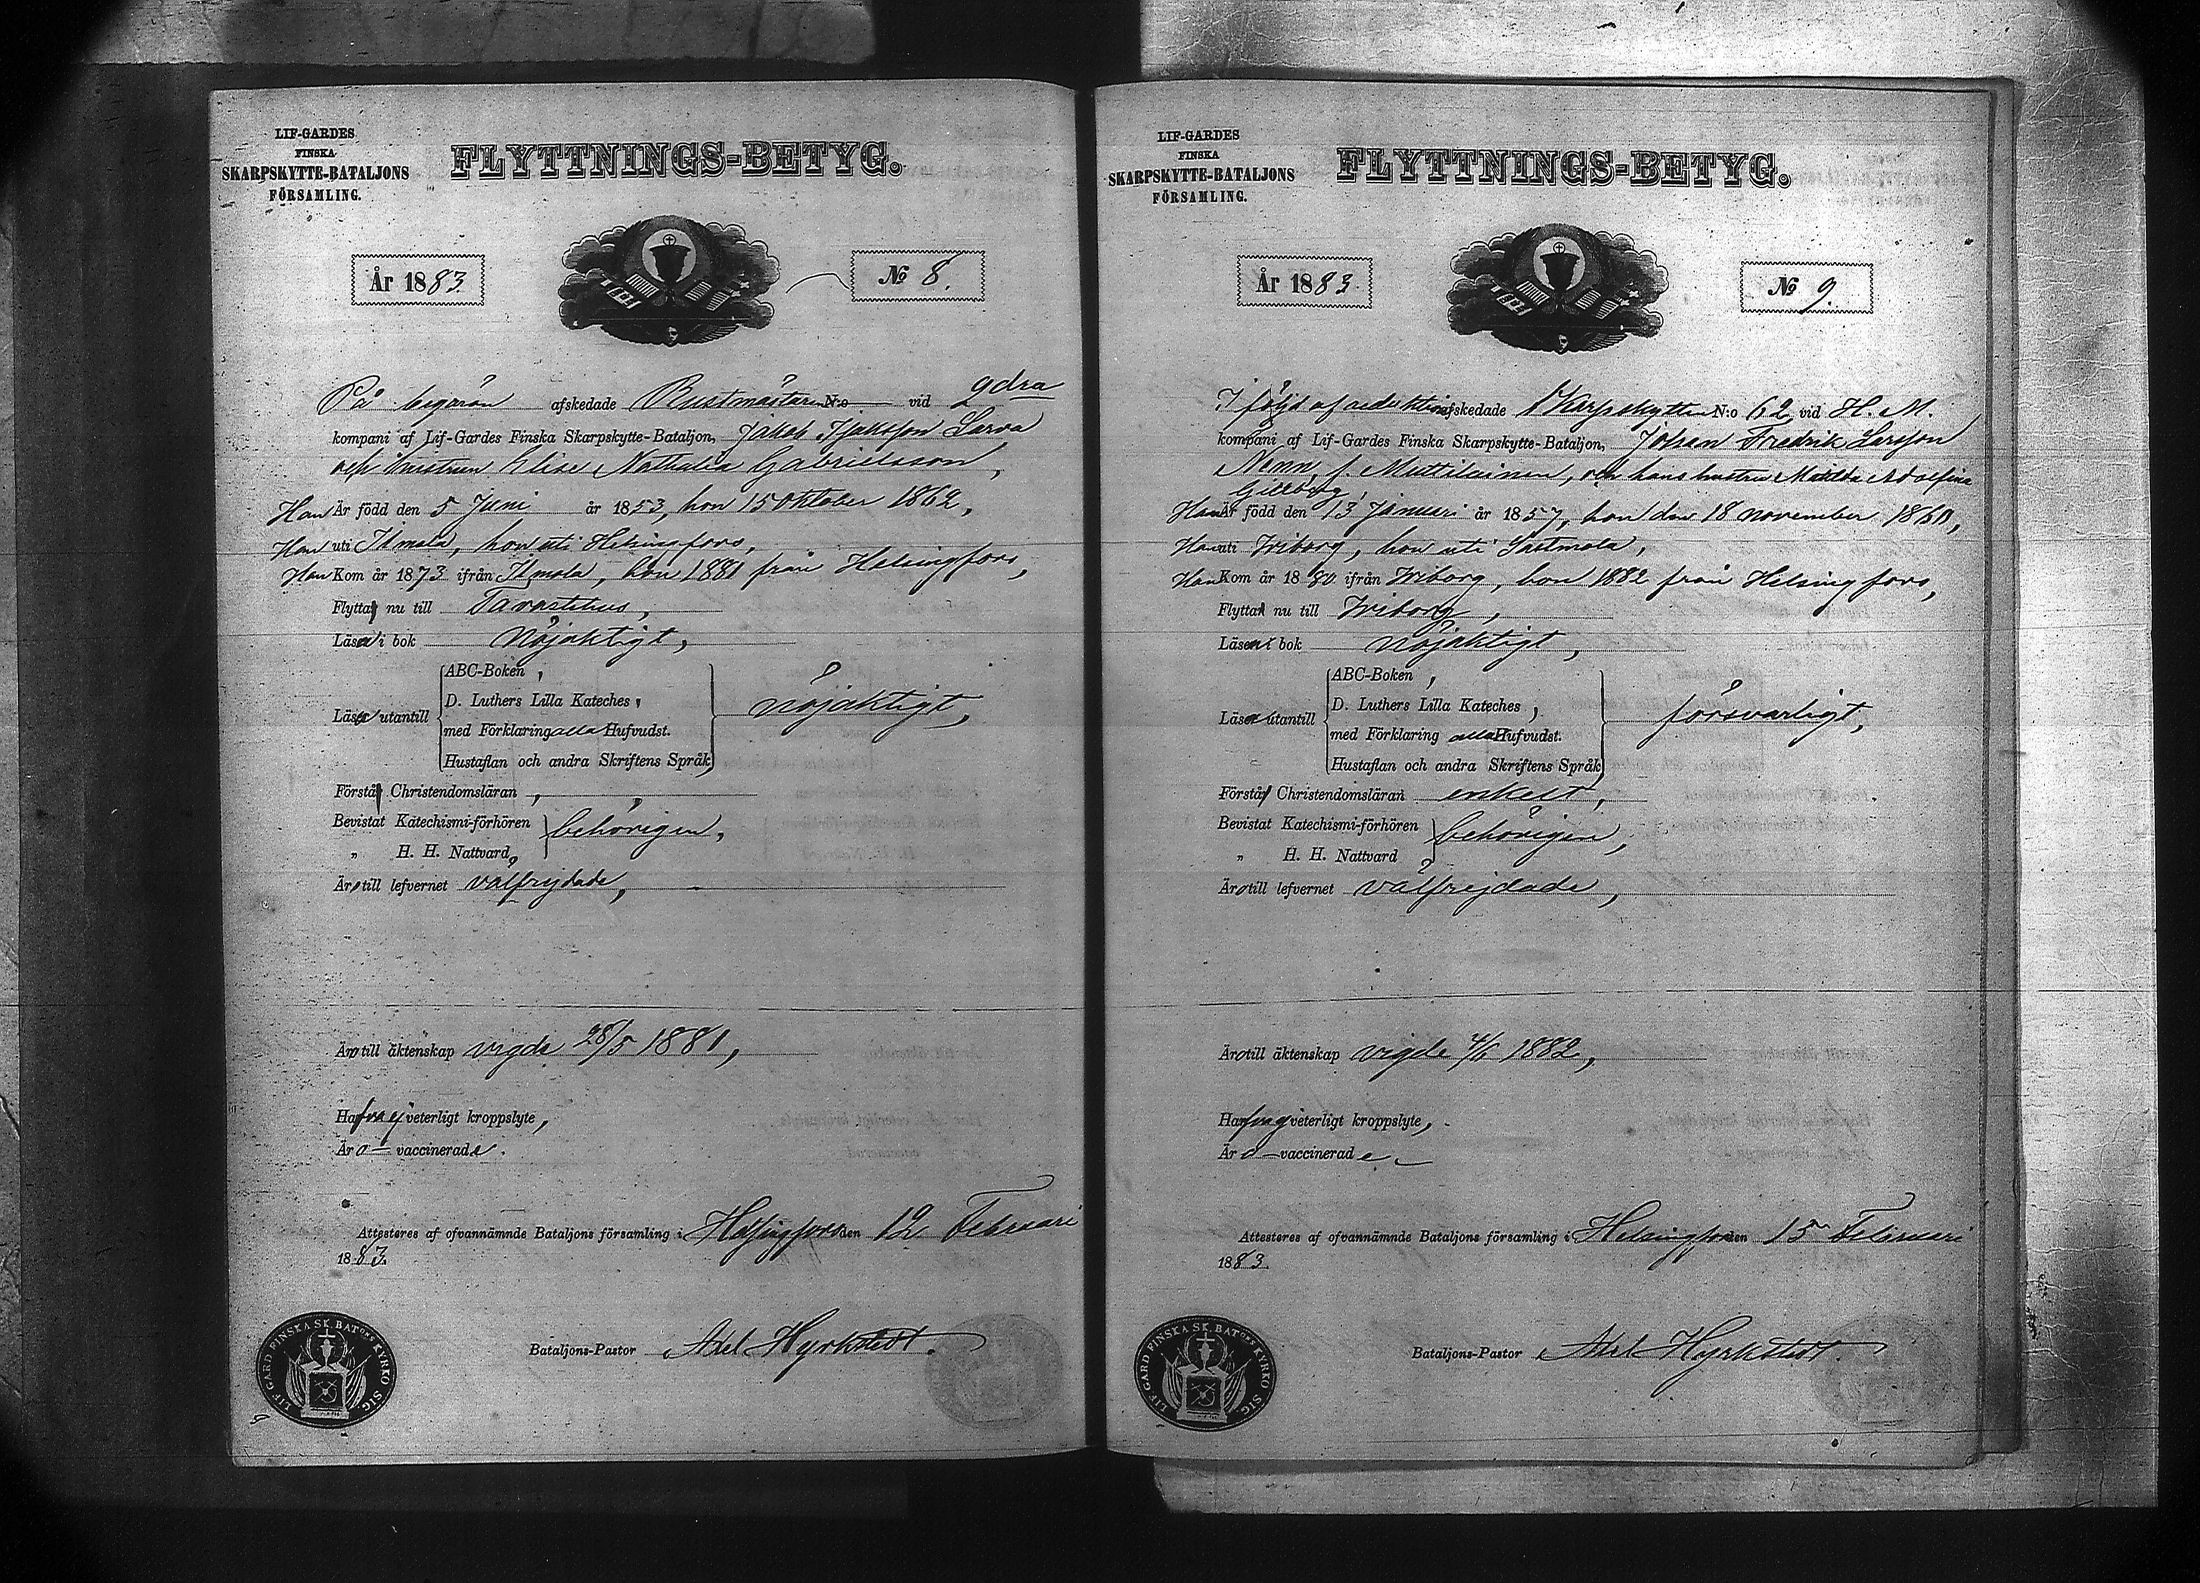 LIF-GARDES
FINSKA
SKARPSKYTTE-BATALJONS
FÖRSAMLING.
FLYTTNINGS-BETYG.
År 1883.
№ 8.
På begäran afskedade Rustmästaren N:o vid 2dra
kompani af Lif-Gardes Finska Skarpskytte-Bataljon, Jakob Larva
och hustrun Elise Nathalia Gabrielsson,
Han Är född den 5 Juni år 1853, hon 15 Oktober 1862,
Han uti Ilmola, hon uti Helsingfors,
Han Kom år 1873 ifrån Ilmola, hon 1881 från Helsingfors,
Flytta nu till Tavastehus,
Läsa i bok nöjaktigt,
ABC-Boken,
Läsa utantill D. Luthers Lilla Kateches, nöjaktigt,
med Förklaring alla Hufvudst.
Hustaflan och andra Skriftens Språk
Förstå Christendomsläran,
Bevistat Katechismi-förhören behörigen,
„ H. H. Nattvard,
Äro till lefvernet välfrejdade,
Äro till äktenskap vigde 28/5 1881,
Hafva ej veterligt kroppslyte,
Äro vaccinerade.
Attesteras af ofvannämnde Bataljons församling i Helsingfors den 12 Februari
1883.
Bataljons-Pastor Axel Hyrkstedt.
LIF GARD FINSKA SK. BATONS KYRKO SIG.
LIF-GARDES
FINSKA
SKARPSKYTTE-BATALJONS
FÖRSAMLING.
FLYTTNINGS-BETYG.
År 1883.
№ 9.
I följd af reduktion afskedade Skarpskytten N:o 62 vid H. M.
kompani af Lif-Gardes Finska Skarpskytte-Bataljon, Johan Fredrik Larsson
f. Muttilainen, och hans hustru Matilda Adolfina
Gillberg,
Han Är född den 13 Januari år 1857, hon den 18 november 1860,
Han uti Wiborg, hon uti Sastmola,
Han Kom år 1880 ifrån Wiborg, hon 1882 från Helsingfors,
Flytta nu till Wiborg,
Läsa i bok nöjaktigt,
ABC-Boken,
Läsa utantill D. Luthers Lilla Kateches, försvarligt,
med Förklaring alla Hufvudst.
Hustaflan och andra Skriftens Språk
Förstå Christendomsläran enkelt,
Bevistat Katechismi-förhören behörigen,
„ H. H. Nattvard
Äro till lefvernet välfrejdade,
Äro till äktenskap vigde 4/6 1882,
Hafva ej veterligt kroppslyte,
Äro vaccinerade
Attesteras af ofvannämnde Bataljons församling i Helsingfors den 15 Februari
1883.
Bataljons-Pastor Axel Hyrkstedt.
LIF GARD FINSKA SK. BATONS KYRKO SIG.